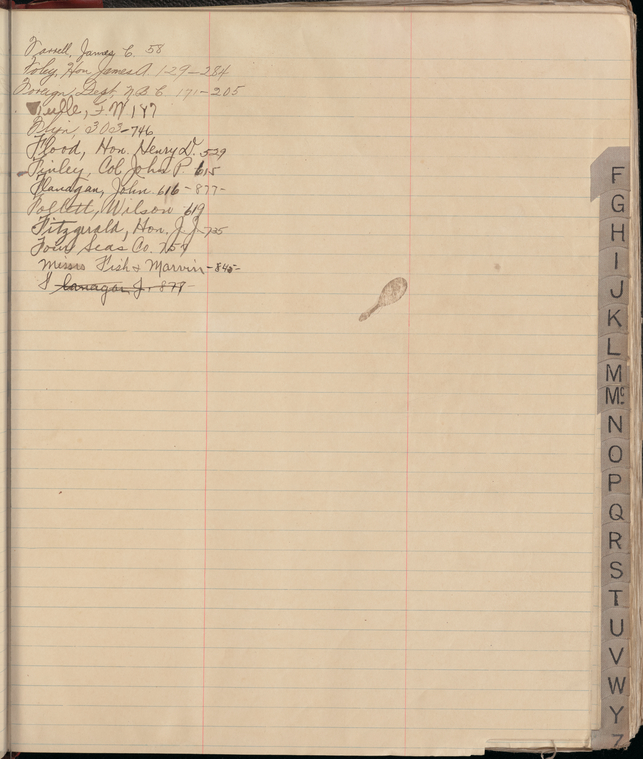 Farrell, James C. 58
Foley, Hon James A. 129-284
Foreign, Dept. N.B.C. 171-205
F.W. 187
303-746
Flood, Hon. Henry D. 529
Finley, Col John P. 615
Flanagan, John. 616-877-
Follett, Wilson 619
Fitzgerald, Hon. J.J. 735
Four Seas Co. 754
Messrs Fish & Marvin-845-
Flanagan J. 877
F
G
H
I
J
K
L
M
Mc
N
O
P
Q
R
S
T
U
V
W
Y
Z